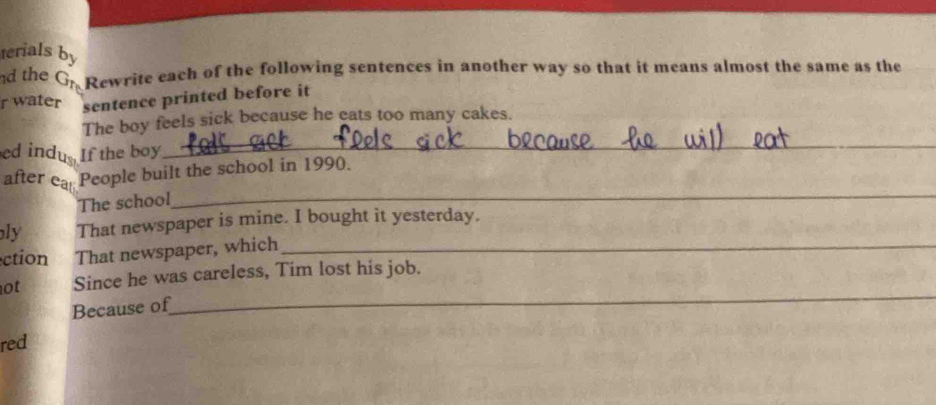 terials by
nd the Gre
r water
ed indus
after ea
ply
ction
not
red
Rewrite each of the following sentences in another way so that it means almost the same as the
sentence printed before it
The boy feels sick because he eats too many cakes.
If the boy feels sick because he will eat
People built the school in 1990.
The school
That newspaper is mine. I bought it yesterday.
That newspaper, which
Since he was careless, Tim lost his job.
Because of